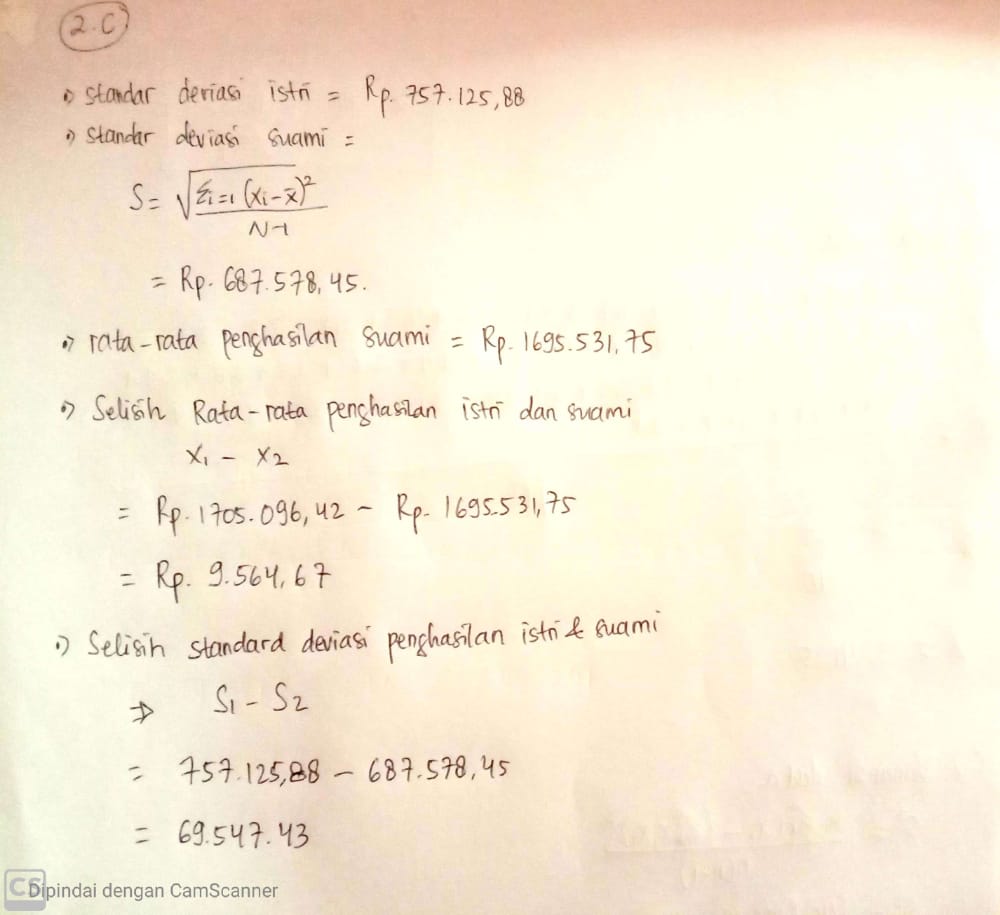 2.C
standar deviasi istri = Rp. 757.125,88
standar deviasi suami =
S = √Σi=1 (xi-x̄)²
N-1
= Rp. 687.578,45.
rata-rata penghasilan suami = Rp. 1695.531,75
Selisih Rata-rata penghasilan istri dan suami
X1 - X2
= Rp. 1705.096,42 - Rp. 1695.531,75
= Rp. 9.564,67
Selisih standard deviasi penghasilan istri & suami
⇒ S1 - S2
= 757.125,88 - 687.578,45
= 69.547.43
CS Dipindai dengan CamScanner